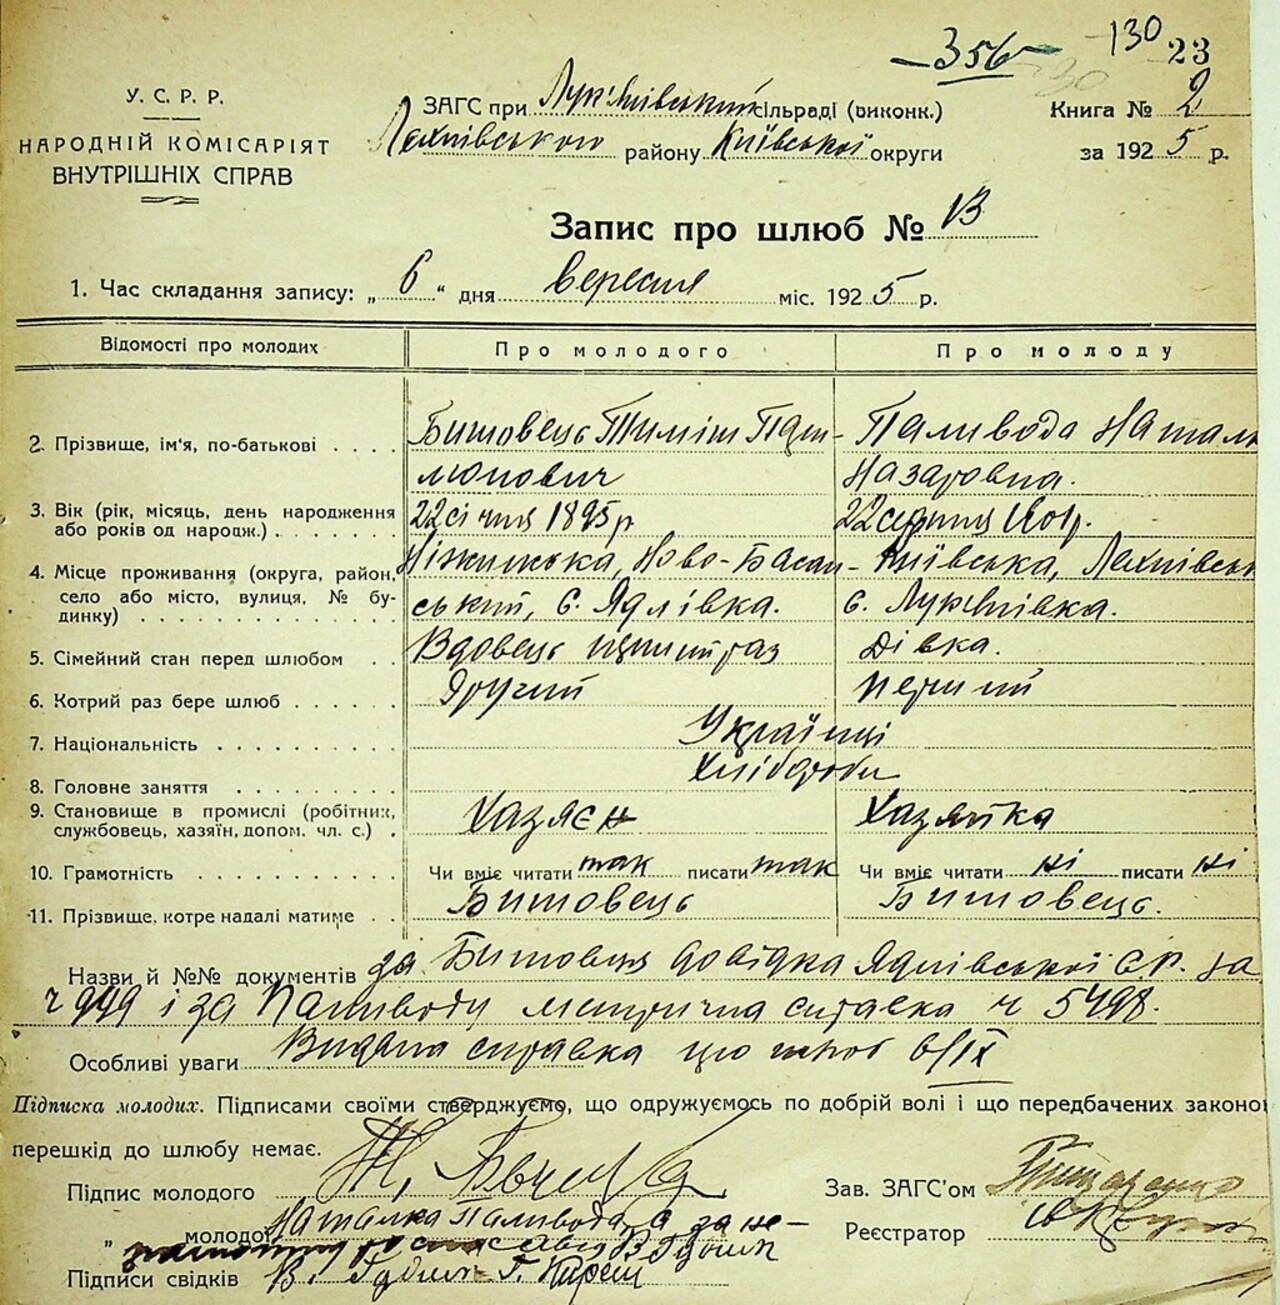 -356- -130 23
У. С. Р. Р.
НАРОДНІЙ КОМІСАРІЯТ
ВНУТРІШНІХ СПРАВ
ЗАГС при Лук'янівський сільраді (виконк.) Книга № 2
району Київської округи за 1925 р.
Запис про шлюб № 13
1. Час складання запису: „6“ дня вересня міс. 1925 р.
Відомості про молодих Про молодого Про молоду
2. Прізвище, ім'я, по-батькові Битовець Тиміш Пан- Паливода Натал
Назаровна.
3. Вік (рік, місяць, день народження 22 січня 1895 р 22 серпня 1901 р.
або років од народж.)
4. Місце проживання (округа, район, Ніжинська, Ново-Басан- Київська,
село або місто, вулиця, № бу- ський, с. Ядлівка. с. Лук'янівка.
динку)
5. Сімейний стан перед шлюбом Вдовець перший раз Дівка.
6. Котрий раз бере шлюб Другий перший
7. Національність Українці
8. Головне заняття Хлібороби
9. Становище в промислі (робітник, Хазяєн Хазяйка
службовець, хазяїн, допом. чл. с.)
10. Грамотність Чи вміє читати так писати так Чи вміє читати ні писати ні
11. Прізвище, котре надалі матиме Битовець Битовець.
Назви й №№ документів за Битовця довідка Ядлівської С.Р. за
ч 949 і за Паливоду метрична справка ч 5498.
Особливі уваги Видана справка про шлюб 6/IX
Підписка молодих. Підписами своїми стверджуємо, що одружуємось по добрій волі і що передбачених законо
перешкід до шлюбу немає.
Підпис молодого Зав. ЗАГС'ом
„ молодої Наталка Паливода, а за не- Реєстратор
Підписи свідків В.